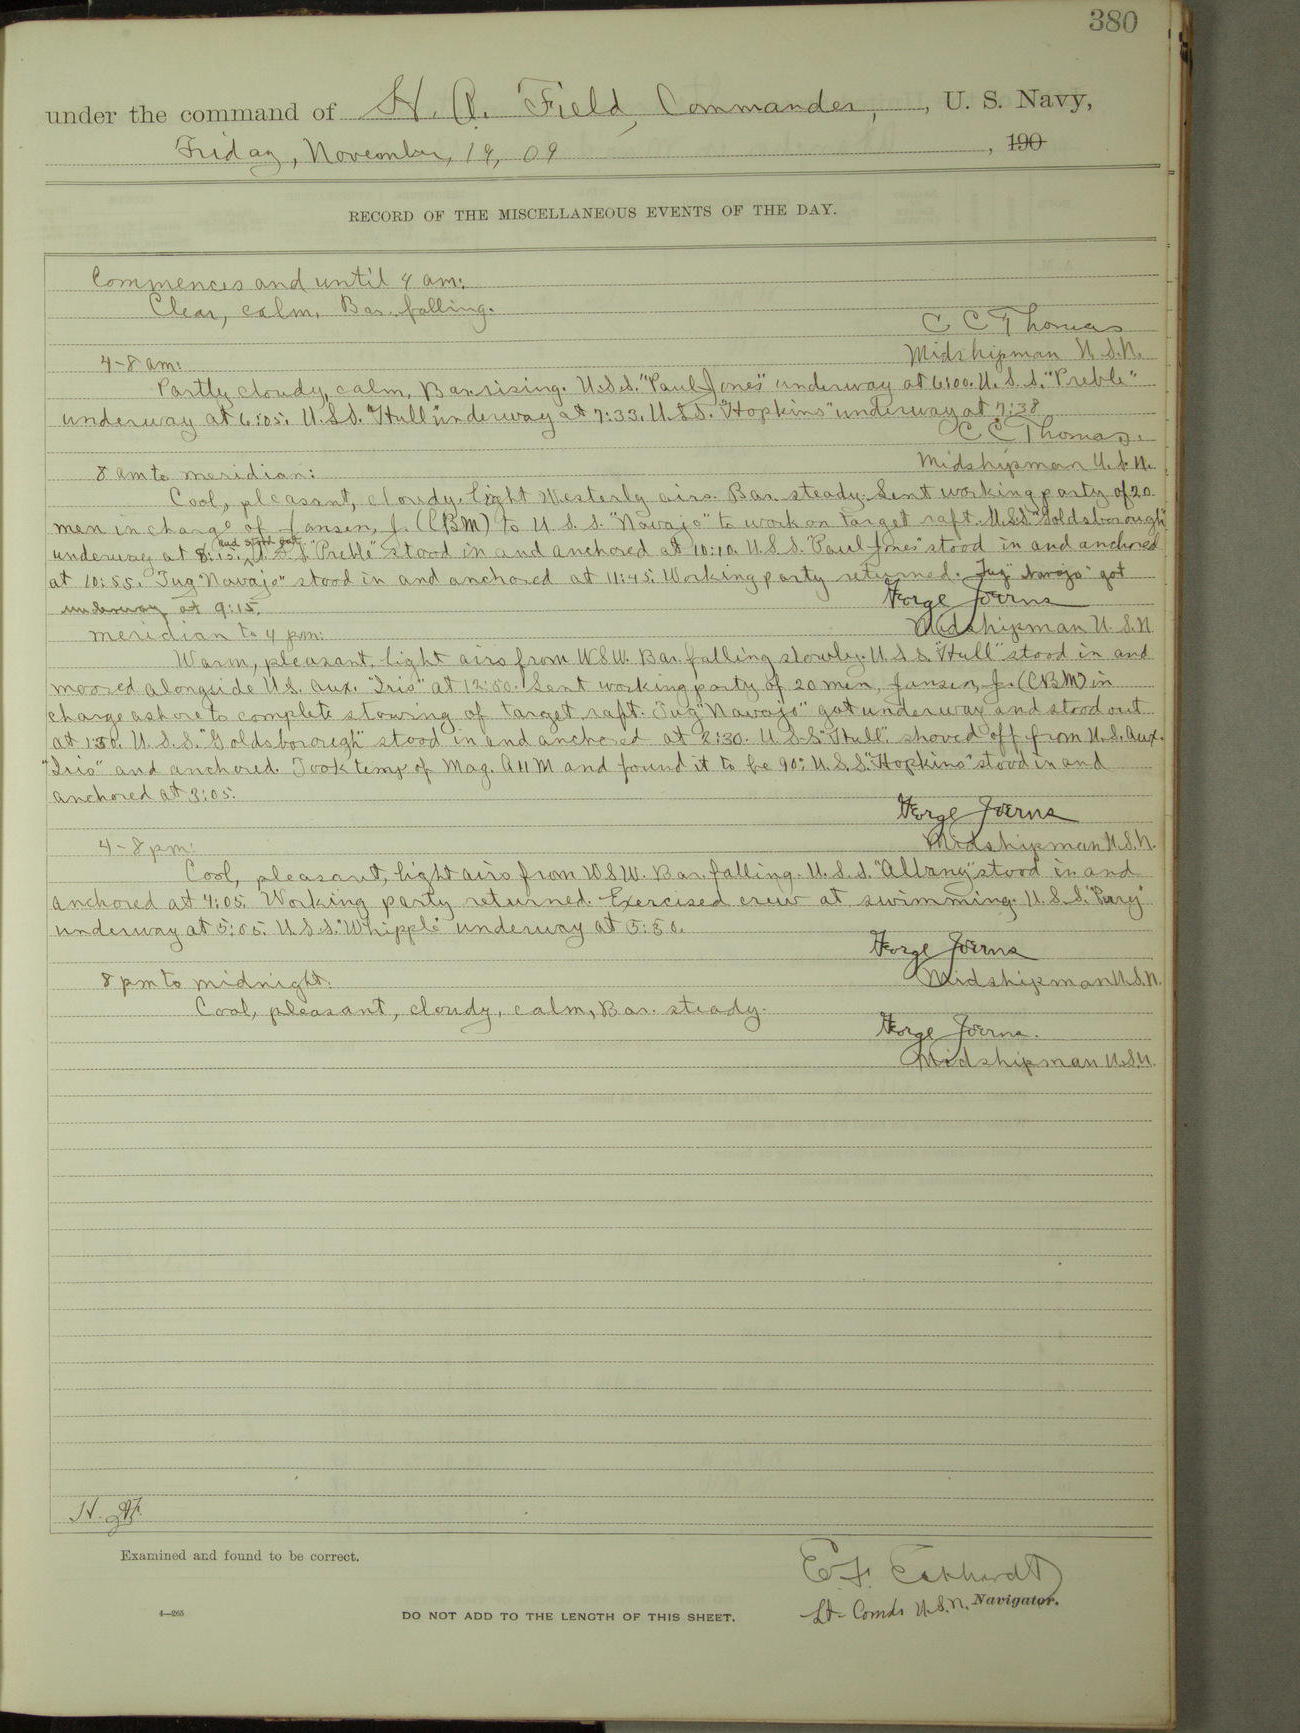 380
under the command of H. A. Field, Commander, , U. S. Navy,
Friday, November, 19, 09 , 190
RECORD OF THE MISCELLANEOUS EVENTS OF THE DAY.
Commences and until 4 am:
Clear, calm, Bar. falling.
C C Thomas
Midshipman U.S.N.
4-8 am:
Partly cloudy, calm, Bar. rising. U.S.S. "Paul Jones" underway at 6:00. U.S.S. "Preble"
underway at 6:05. U.S.S. "Hull" underway at 7:33. U.S.S. "Hopkins" underway at 7:38
C C Thomas.
Midshipman U.S.N.
8 am to meridian:
Cool, pleasant, cloudy, light Westerly airs. Bar. steady. Sent working party of 20
men in charge of Jansen, J. (CBM) to U.S.S. "Navajo" to work on target raft. U.S.S. "Goldsborough"
and stood out
underway at 8:15. U.S.S. "Preble" stood in and anchored at 10:10. U.S.S. "Paul Jones" stood in and anchored
at 10:55. Tug "Navajo" stood in and anchored at 11:45. Working party returned. Tug "Navajo" got
underway at 9:15.
George Joerns
Midshipman U.S.N.
meridian to 4 pm:
Warm, pleasant, light airs from WSW. Bar. falling slowly. U.S.S. "Hull" stood in and
moored alongside U.S. Aux. "Iris" at 12:50. Sent working party of 20 men, Jansen, J. (CBM) in
charge ashore to complete stowing of target raft. Tug "Navajo" got underway and stood out
at 1:30. U.S.S. "Goldsborough" stood in and anchored at 2:30. U.S.S. "Hull" shoved off from U.S. Aux.
"Iris" and anchored. Took temp of Mag. A11M and found it to be 90°. U.S.S. "Hopkins" stood in and
anchored at 3:05.
George Joerns
Midshipman U.S.N.
4-8 pm:
Cool, pleasant, light airs from WSW. Bar. falling. U.S.S. "Albany" stood in and
anchored at 4:05. Working party returned. Exercised crew at swimming. U.S.S. "Perry"
underway at 5:05. U.S.S. "Whipple" underway at 5:50.
George Joerns
Midshipman U.S.N.
8 pm to midnight:
Cool, pleasant, cloudy, calm, Bar. steady.
George Joerns.
Midshipman U.S.N.
H. A. F.
Examined and found to be correct.
E. F. Eckhardt
Lt-Comdr U.S.N. Navigator.
4—265
DO NOT ADD TO THE LENGTH OF THIS SHEET.